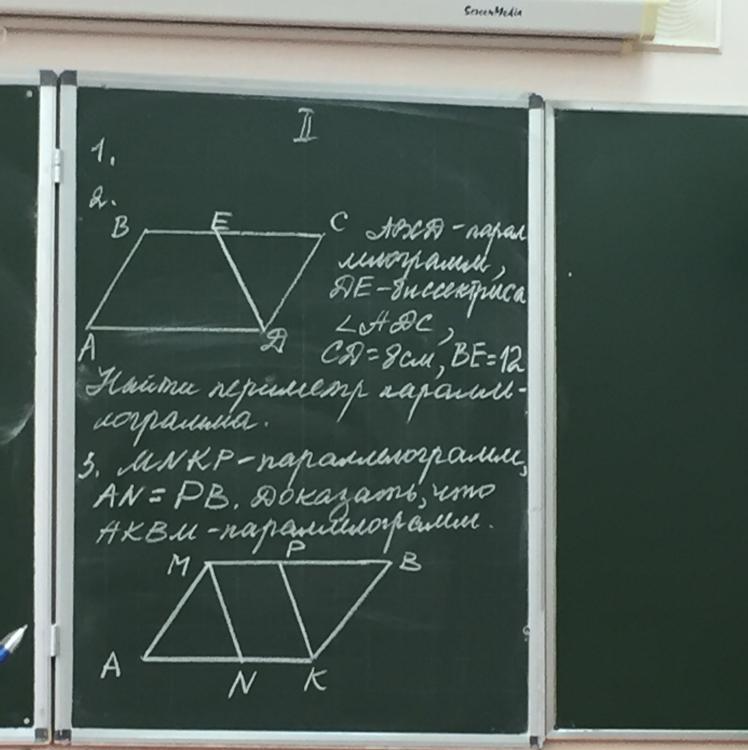 ScreenMedia
II
1.
2.
B E C
ABCD - парал
лелограмм,
DE - биссектриса
∠ADC,
A D
CD = 8см, BE = 12
Найти периметр паралле-
лограмма.
3. MNKP - параллелограмм,
AN = PB. Доказать, что
AKBM - параллелограмм.
M P B
A N K